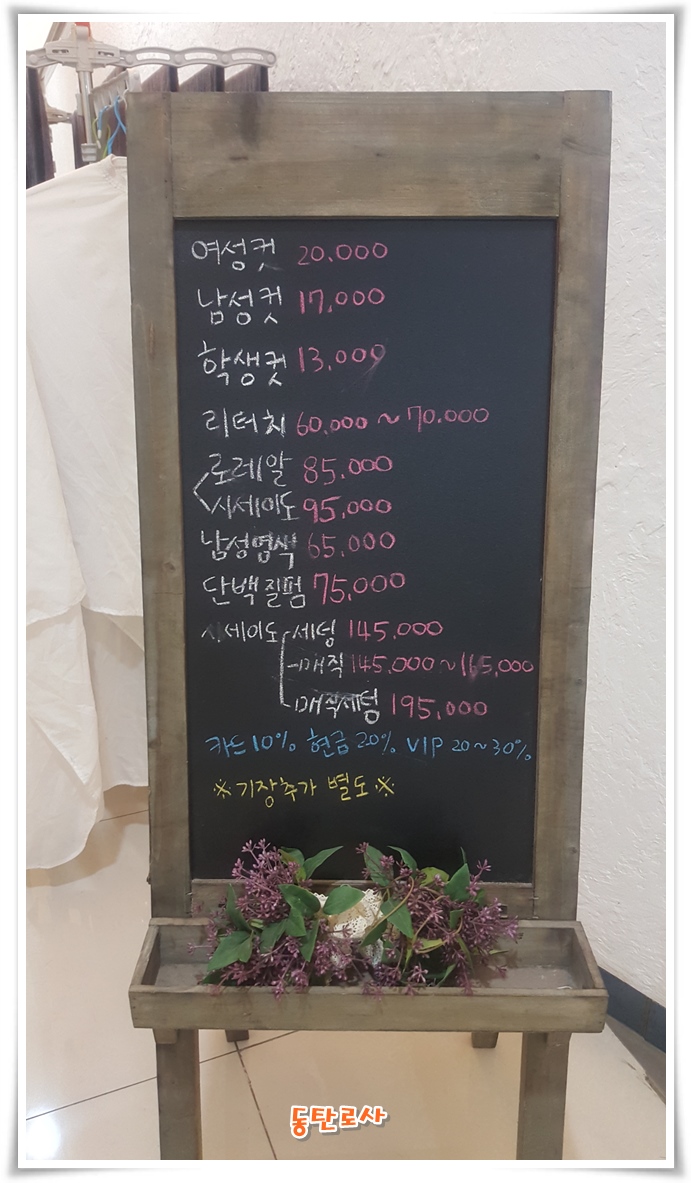 여성컷 20.000
남성컷 17,000
학생컷 13,000
리터치 60,000 ~ 70.000
로레알 85,000
시세이도 95,000
남성염색 65,000
단백질펌 75,000
시세이도 세팅 145,000
매직 145,000 ~ 165,000
매직세팅 195,000
카드10% 현금20% VIP 20~30%
※기장추가 별도※
동탄로사